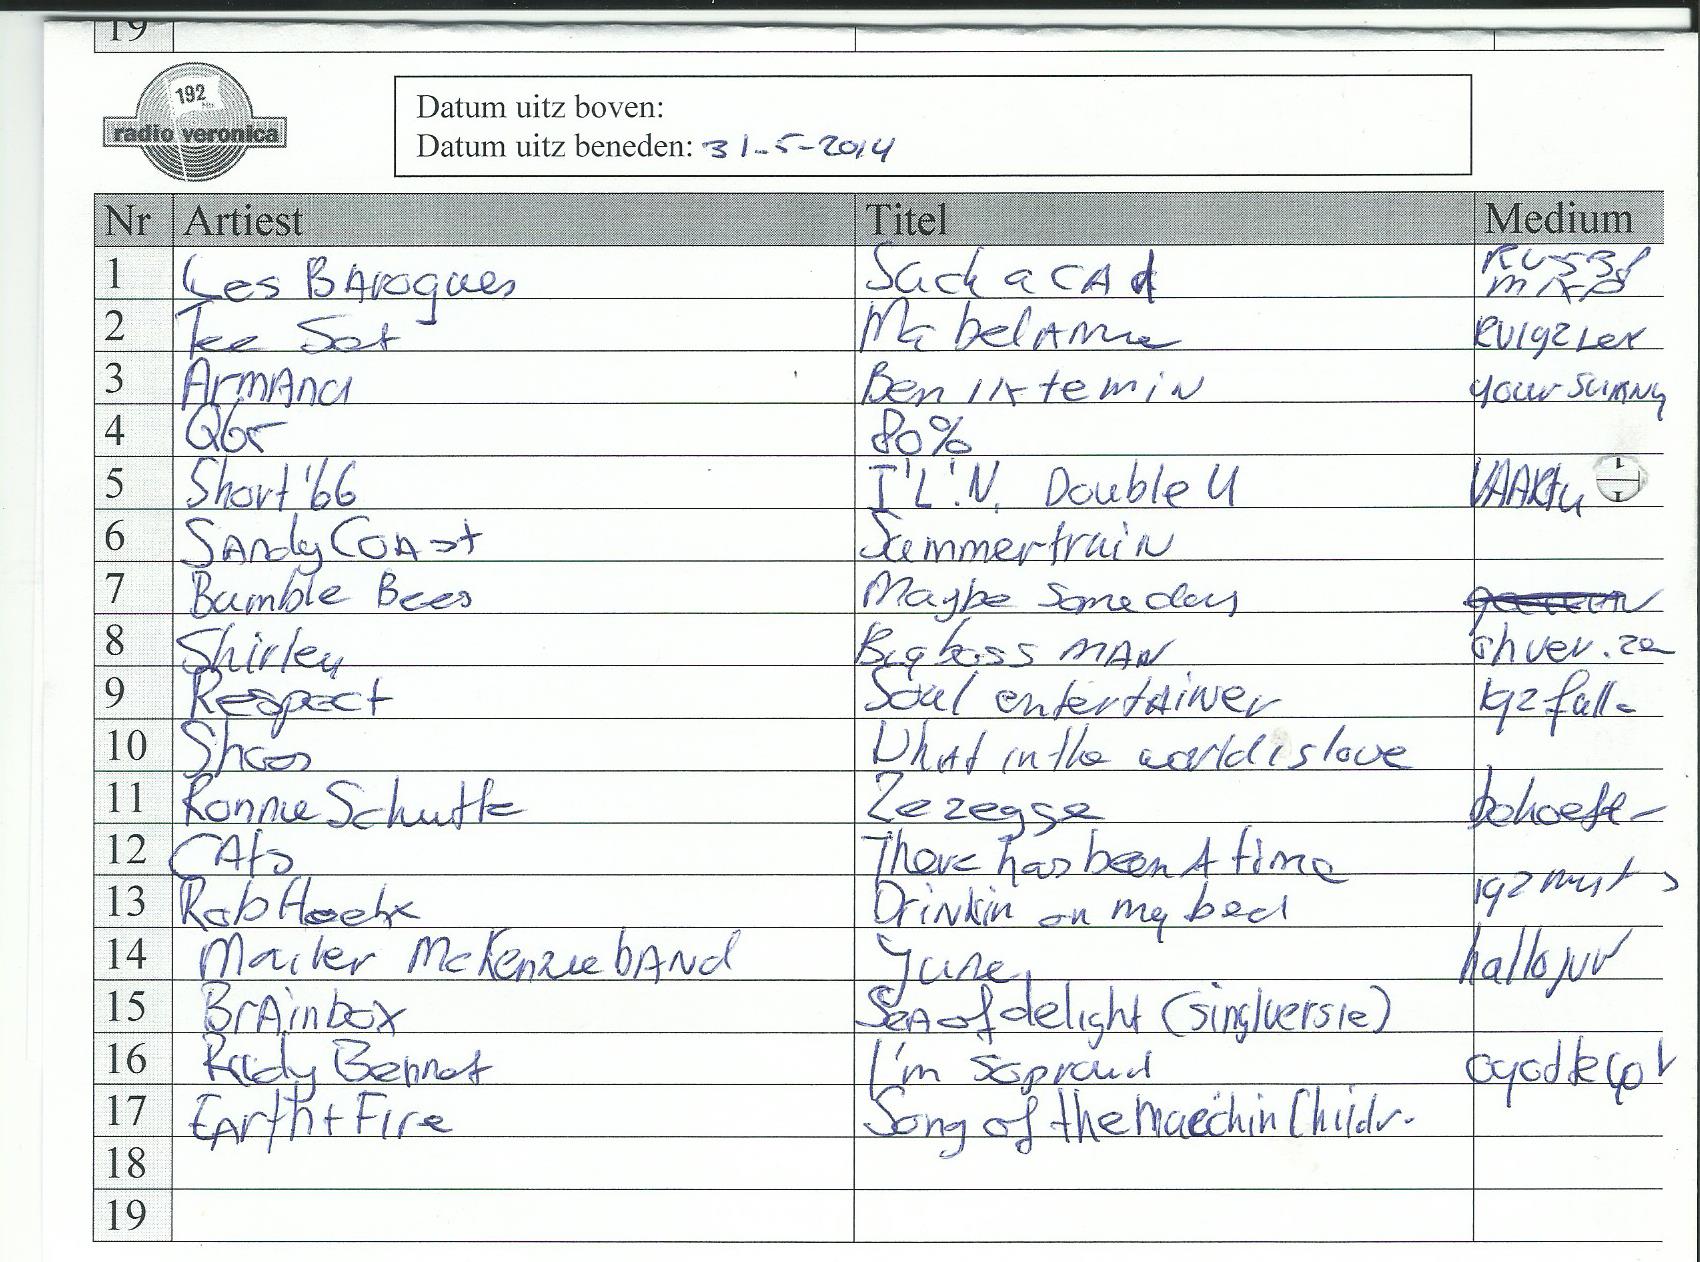 19
192
radio veronica
Datum uitz boven:
Datum uitz beneden: 31-5-2014
Nr Artiest Titel Medium
1 Les BAroques Such a CAd
2 Tee Set Ma belAmie RV192 Ler
3 ArmAnd Ben ik te min your sunny
4 Q65 80%
5 Short '66 I'L'.N. Double U
6 SAndy COAst Summertrain
7 Bumble Bees Maybe someday
8 Shirley Big boss mAN
9 Respect Soul entertAiNer 192 full
10 Shoes WhAt in the world is love
11 Ronnie Schutte Ze zegge
12 CAts There has been A time
13 Rob Hoeke Drinkin on my bed 192 must
14 Mailer McKenzie bANd June
15 BrAinbox SeA of delight (singlversie)
16 Rudy Bennet I'm so proud
17 EArth + Fire Song of the Maechin Childr.
18
19